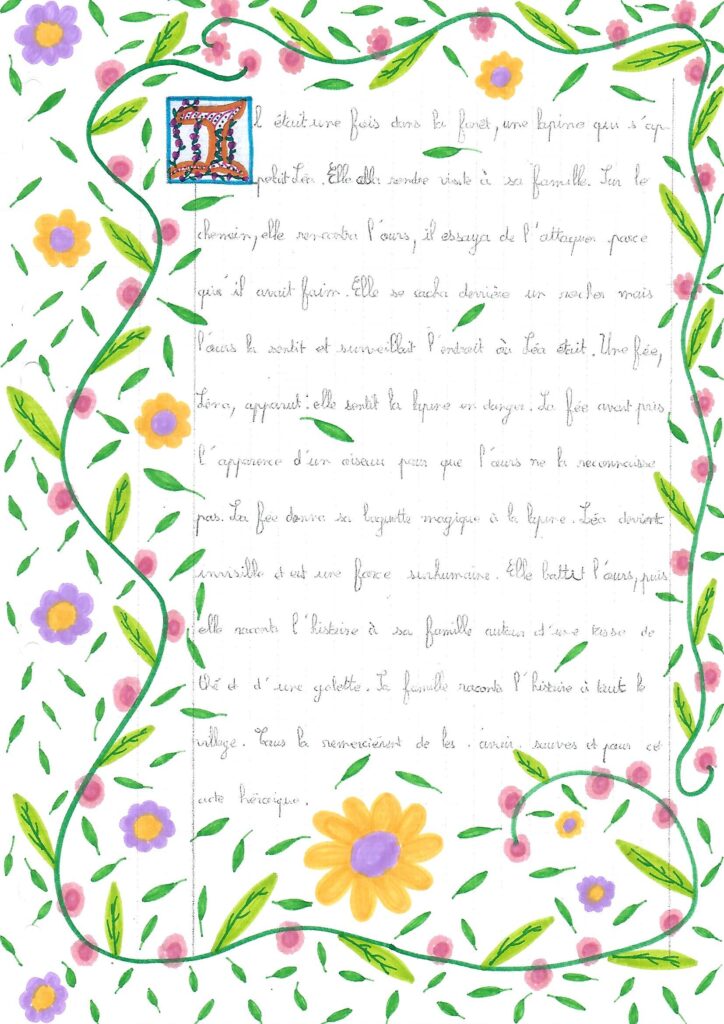 Il était une fois dans la forêt, une lapine qui s'ap-
pelait Léa. Elle alla rendre visite à sa famille. Sur le
chemin, elle rencontra l'ours, il essaya de l'attaquer parce
qu'il avait faim. Elle se cacha derrière un rocher mais
l'ours la sentit et surveillait l'endroit où Léa était. Une fée,
Léna, apparut : elle sentit la lapine en danger. La fée avait pris
l'apparence d'un oiseau pour que l'ours ne la reconnaisse
pas. La fée donna sa baguette magique à la lapine. Léa devient
invisible et eut une force surhumaine. Elle battit l'ours, puis
elle raconta l'histoire à sa famille autour d'une tasse de
thé et d'une galette. La famille raconta l'histoire à tout le
village. Tous la remercièrent de les avoir sauvés et pour cet
acte héroïque.